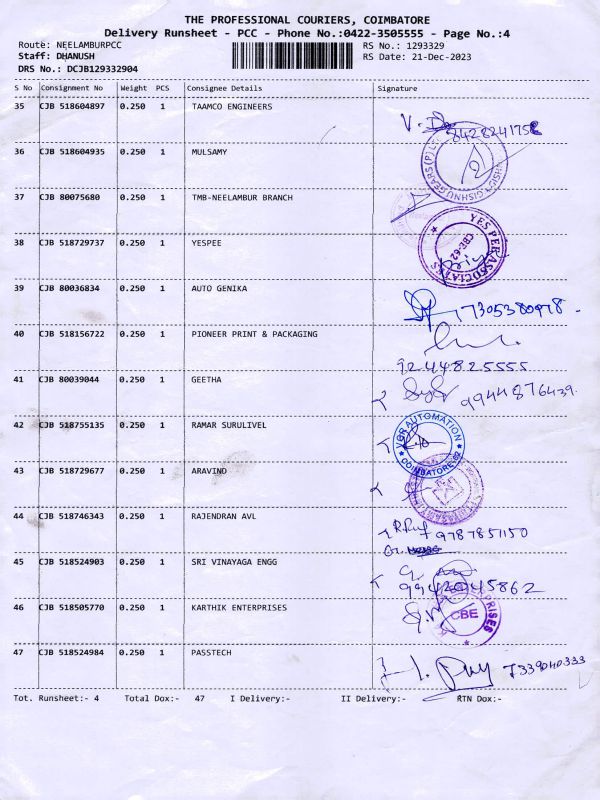 THE PROFESSIONAL COURIERS, COIMBATORE
Delivery Runsheet - PCC - Phone No.:0422-3505555 - Page No.:4
Route: NEELAMBURPCC
RS No.: 1293329
Staff: DHANUSH
RS Date: 21-Dec-2023
DRS No.: DCJB129332904
S No Consignment No Weight PCS Consignee Details Signature
35 CJB 518604897 0.250 1 TAAMCO ENGINEERS
36 CJB 518604935 0.250 1 MULSAMY
GEARS (P) L
37 CJB 80075680 0.250 1 TMB-NEELAMBUR BRANCH
38 CJB 518729737 0.250 1 YESPEE
YES PER ASSOCIATES
CBE-62
39 CJB 80036834 0.250 1 AUTO GENIKA
7305380978
40 CJB 518156722 0.250 1 PIONEER PRINT & PACKAGING
9244825555
41 CJB 80039044 0.250 1 GEETHA
9944876439
42 CJB 518755135 0.250 1 RAMAR SURULIVEL
VGR AUTOMATION
COIMBATORE-62
43 CJB 518729677 0.250 1 ARAVIND
44 CJB 518746343 0.250 1 RAJENDRAN AVL
9787851150
45 CJB 518524903 0.250 1 SRI VINAYAGA ENGG
9942045862
46 CJB 518505770 0.250 1 KARTHIK ENTERPRISES
CBE
47 CJB 518524984 0.250 1 PASSTECH
7339040333
Tot. Runsheet:- 4 Total Dox:- 47 I Delivery:- II Delivery:- RTN Dox:-